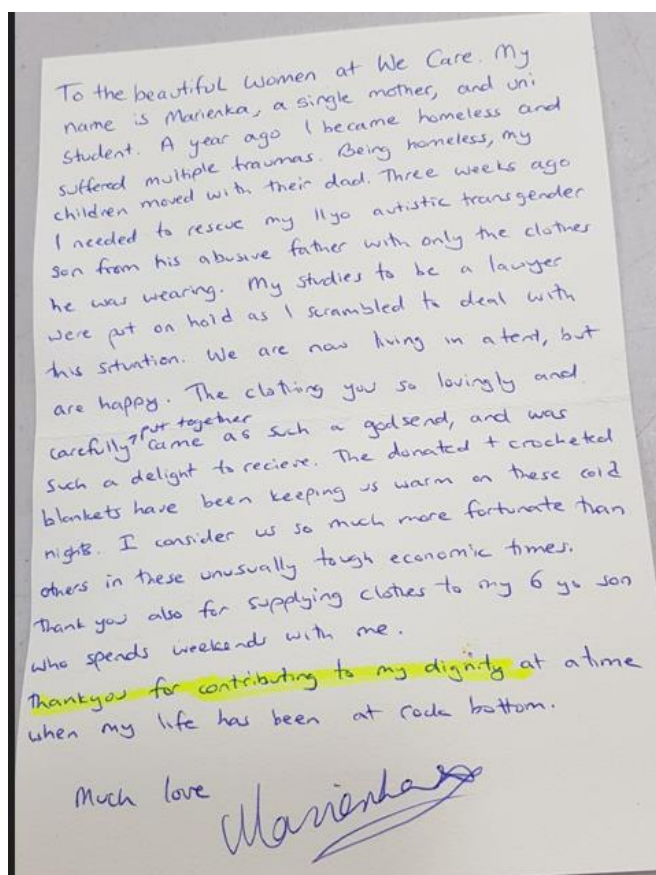 To the beautiful women at We Care. My
name is Marienka, a single mother, and uni
student. A year ago I became homeless and
suffered multiple traumas. Being homeless, my
children moved with their dad. Three weeks ago
I needed to rescue my 11yo autistic transgender
son from his abusive father with only the clothes
he was wearing. My studies to be a lawyer
were put on hold as I scrambled to deal with
this situation. We are now living in a tent, but
are happy. The clothing you so lovingly and
carefully put together came as such a godsend, and was
such a delight to recieve. The donated + crocheted
blankets have been keeping us warm on these cold
nights. I consider us so much more fortunate than
others in these unusually tough economic times.
Thank you also for supplying clothes to my 6 yo son
who spends weekends with me.
Thankyou for contributing to my dignity at a time
when my life has been at rock bottom.
Much love
Marienka